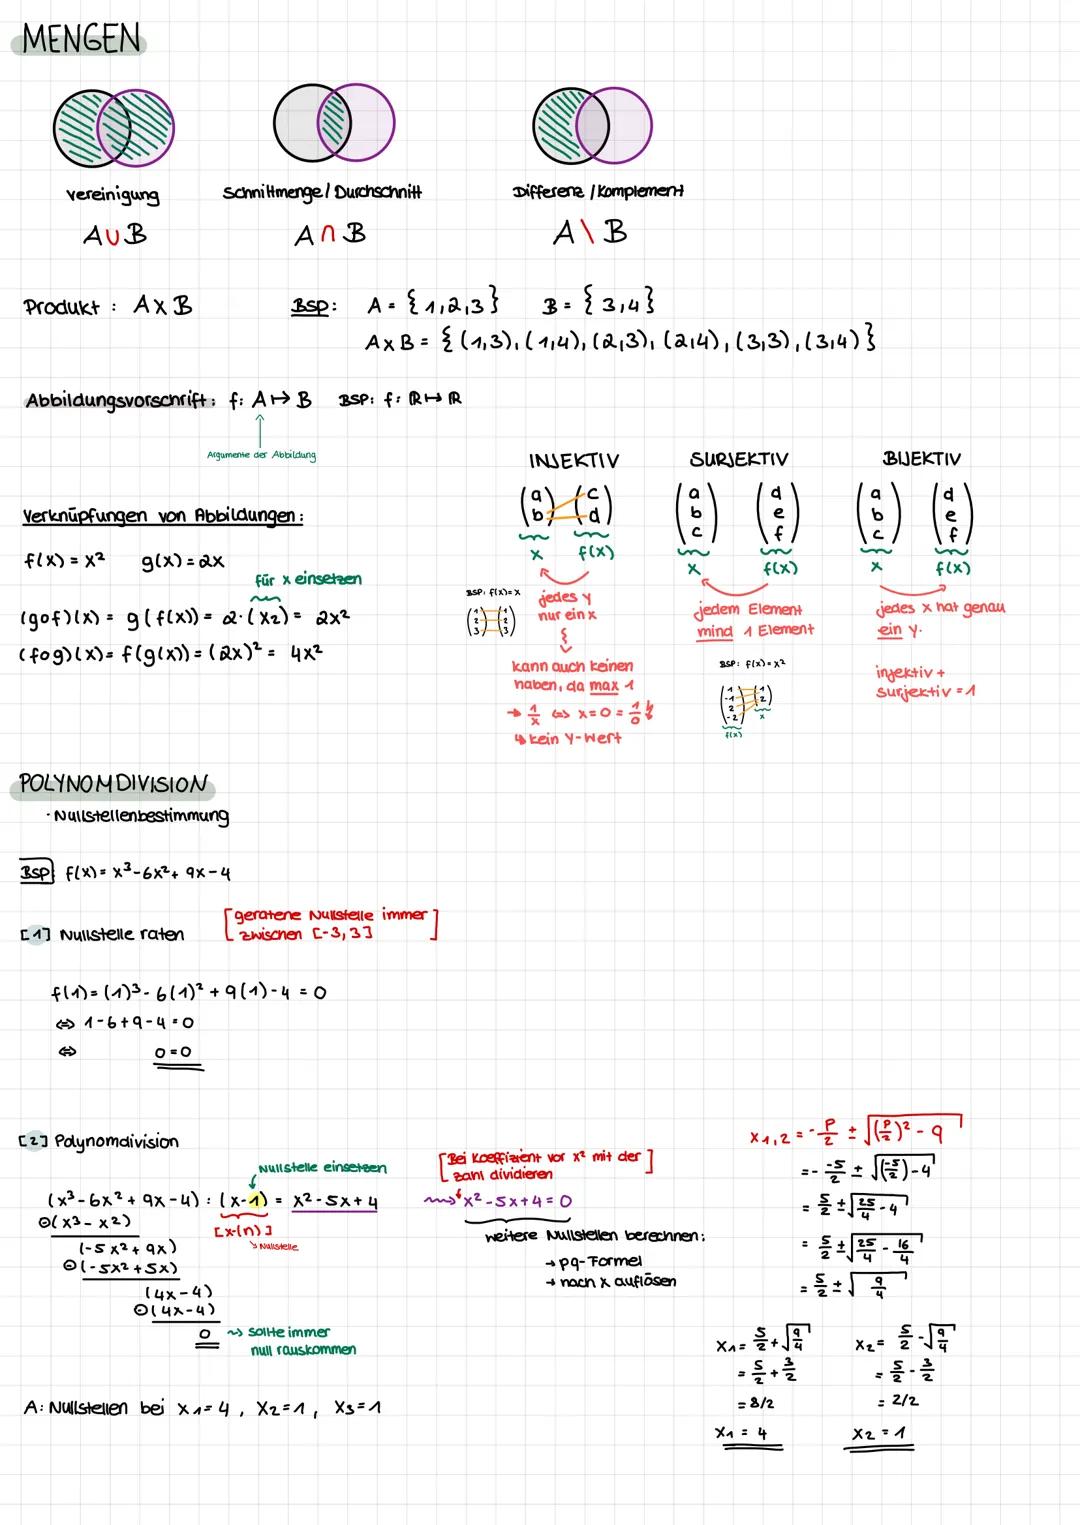 MENGEN
Vereinigung
A∪B
Schnittmenge / Durchschnitt
A ∩ B
Differenz / Komplement
A \ B
Produkt : A x B
BSP: A = { 1,2,3 } B = { 3,4 }
A x B = { (1,3), (1,4), (2,3), (2,4), (3,3), (3,4) }
Abbildungsvorschrift: f: A ↦ B BSP: f: ℝ ↦ ℝ
Argumente der Abbildung
Verknüpfungen von Abbildungen:
f(x) = x² g(x) = 2x
für x einsetzen
(gof)(x) = g(f(x)) = 2·(x2) = 2x²
(fog)(x) = f(g(x)) = (2x)² = 4x²
INJEKTIV
a c
b d
x f(x)
BSP: f(x)=x
1 1
2 2
3 3
jedes y
nur ein x
kann auch keinen
haben, da max 1
→ 1/x ⇔ x=0 = 1/0 ↯
↳ kein Y-Wert
SURJEKTIV
a d
b e
c f
x f(x)
jedem Element
mind 1 Element
BSP: f(x)=x²
1 1
-1 2
2
-2
x
f(x)
BIJEKTIV
a d
b e
c f
x f(x)
jedes x hat genau
ein y.
injektiv +
surjektiv = 1
POLYNOMDIVISION
· Nullstellenbestimmung
BSP f(x) = x³-6x²+ 9x-4
[1] Nullstelle raten
[geratene Nullstelle immer
zwischen [-3,3]]
f(1) = (1)³ - 6(1)² + 9(1) - 4 = 0
⇔ 1-6+9-4=0
⇔ 0=0
[2] Polynomdivision
Nullstelle einsetzen
(x³-6x²+9x-4) : (x-1) = x²-5x+4
⊖(x³-x²)
[x-(n)]
↘ Nullstelle
(-5x²+9x)
⊖(-5x²+5x)
(4x-4)
⊖(4x-4)
0 ~> sollte immer
null rauskommen
[Bei Koeffizient vor x² mit der
Zahl dividieren]
x²-5x+4=0
weitere Nullstellen berechnen:
→ pq-Formel
→ nach x auflösen
x1,2 = -p/2 ± √((p/2)² - q)
= - -5/2 ± √((-5/2) - 4)
= 5/2 ± √(25/4 - 4)
= 5/2 ± √(25/4 - 16/4)
= 5/2 ± √(9/4)
x1 = 5/2 + √(9/4) x2 = 5/2 - √(9/4)
= 5/2 + 3/2 = 5/2 - 3/2
= 8/2 = 2/2
x1 = 4 x2 = 1
A: Nullstellen bei x1=4, x2=1, x3=1